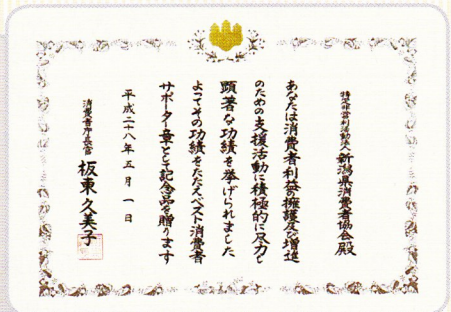 特定非営利活動法人 新潟県消費者協会 殿
あなたは消費者利益の擁護及び増進
のための支援活動に積極的に尽力し
顕著な功績を挙げられました
よってその功績をたたえベスト消費者
サポーター章として記念品を贈ります
平成二十八年五月一日
消費者庁長官 板東久美子